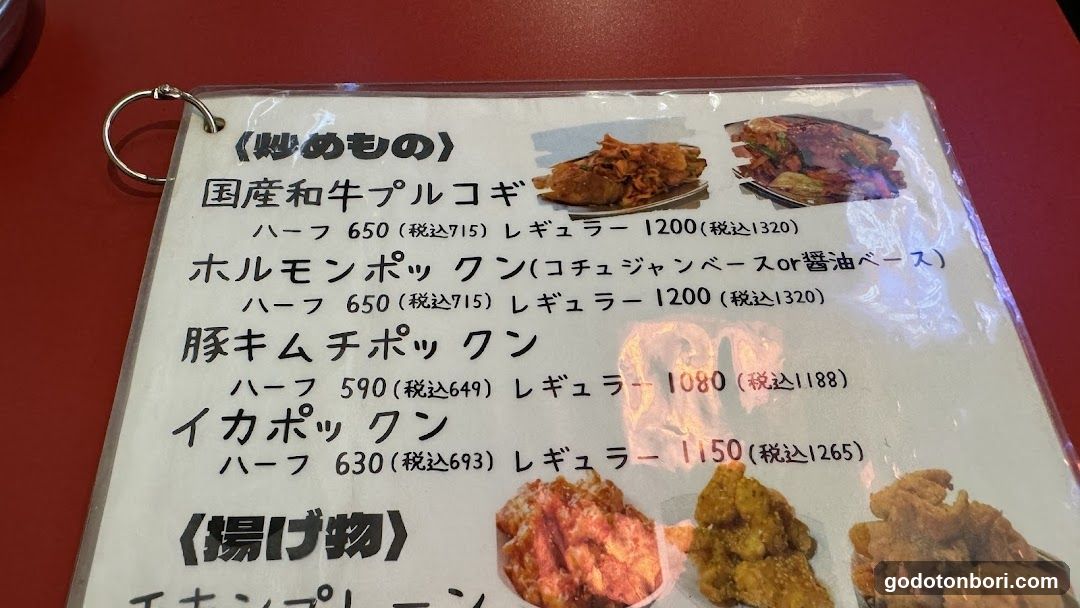 〈炒めもの〉
国産和牛プルコギ
ハーフ 650(税込715) レギュラー 1200(税込1320)
ホルモンポックン(コチュジャンベースor醤油ベース)
ハーフ 650(税込715) レギュラー 1200(税込1320)
豚キムチポックン
ハーフ 590(税込649) レギュラー 1080(税込1188)
イカポックン
ハーフ 630(税込693) レギュラー 1150(税込1265)
〈揚げ物〉
チキンプレーン
godotonbori.com